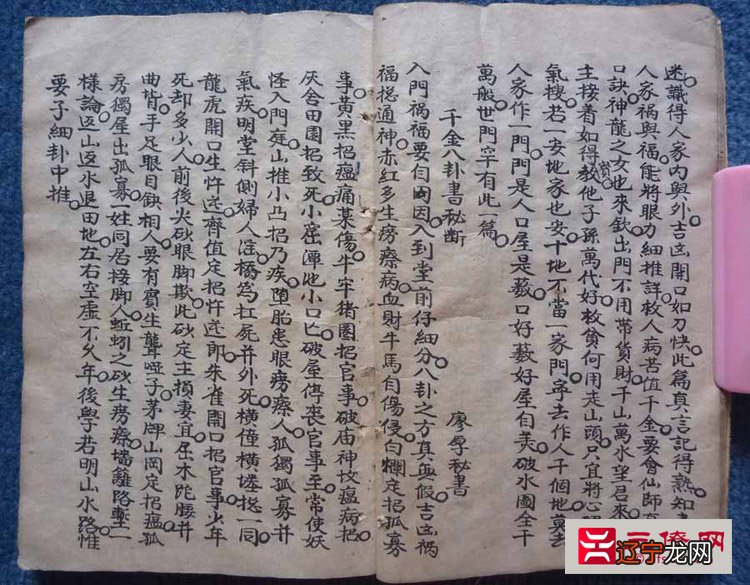 迷識得人家內與外吉凶開口如刀快此篇真言記得熟知
人家禍與福能將眼力細推詳救人病苦值千金要會仙師
口訣神龍之女也來欽出門不用帶貨財千山萬水望君來
主接着如得教他子孫萬代好救貧何用走山頭只宜將
氣搜若一安地家也安十地不當一家門寧去作人千個地莫去
人家作一門門是人口屋是藪口好藪好屋自美破水國全千
萬般世門罕有此一篇
廖厚秘書
千金八卦書秘斷
入門禍福要自因因入到堂前仔細分八卦之方真與假吉凶禍
福總通神赤紅多生癆瘵病血財牛馬自傷侵白爛定招孤寡
事黃黑招瘟痛藥傷牛牢猪圈招官事破庙神坟瘟病招
灰舍田園招致死小窑潭池小口亡破屋停喪官事至常使妖
怪入門庭山推小凸招乃疾墮胎患眼癆瘵人孤獨孤寡并
氣疾明堂斜側婦人淫橋為扛死并外死橫撞橫墟總一同
龍虎開口生忤逆齊值定招忤逆郎朱雀開口招官事少年
死却多少人前後火砂眼脚欺此砂定主損妻宜屈木跎腰并
曲背手足眼目缺相人要有賀生聾啞子茅牌山岡定招瘟孤
房獨屋出孤寡一姓同名接脚人蚯蚓之砂生癆瘵墙籬路塹一
樣論返山返水退田地左右空虛不久年後學若明山水路惟
要子細卦中推
三僚网
辽宁龙网